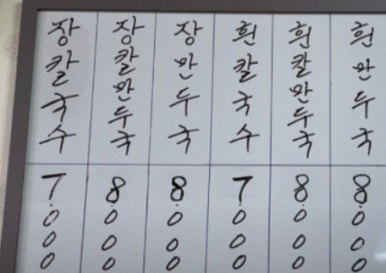 장칼국수
장칼만두국
장만두국
흰칼국수
흰칼만두국
흰만두국
7.000
8.000
8.000
7.000
8.000
8.000